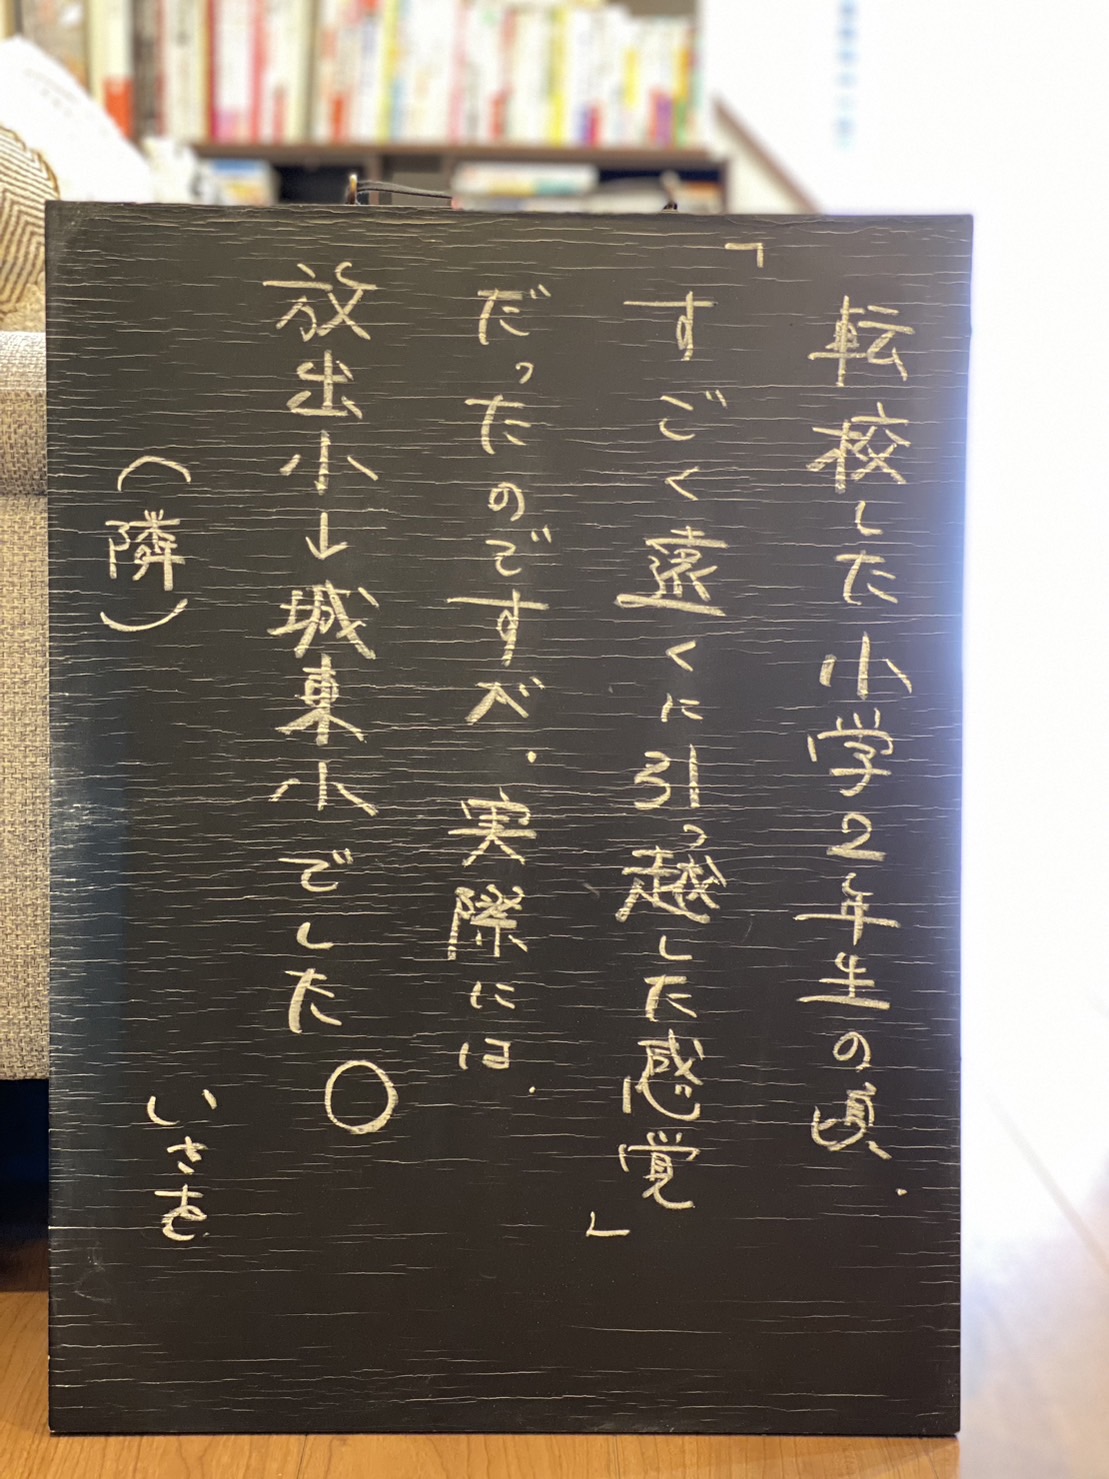 転校した小学2年生の頃、
「すごく遠くに引っ越した感覚」
だったのですが、実際には、
放出小→城東小でした○
（隣）
いさを